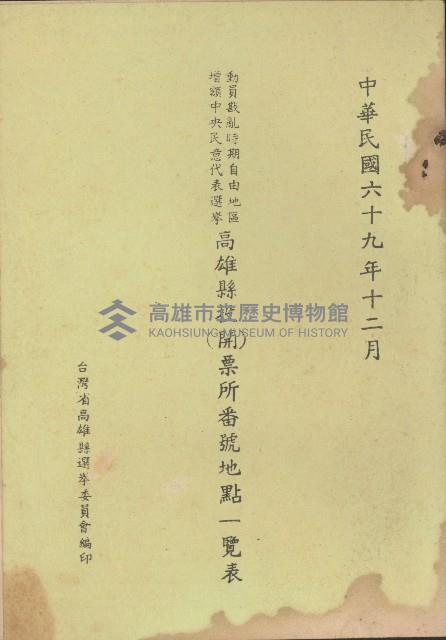 中華民國六十九年十二月
動員戡亂時期自由地區
增額中央民意代表選挙
高雄縣投(開)票所番號地點一覽表
台灣省高雄縣選挙委員會編印
高雄市立歷史博物館
KAOHSIUNG MUSEUM OF HISTORY